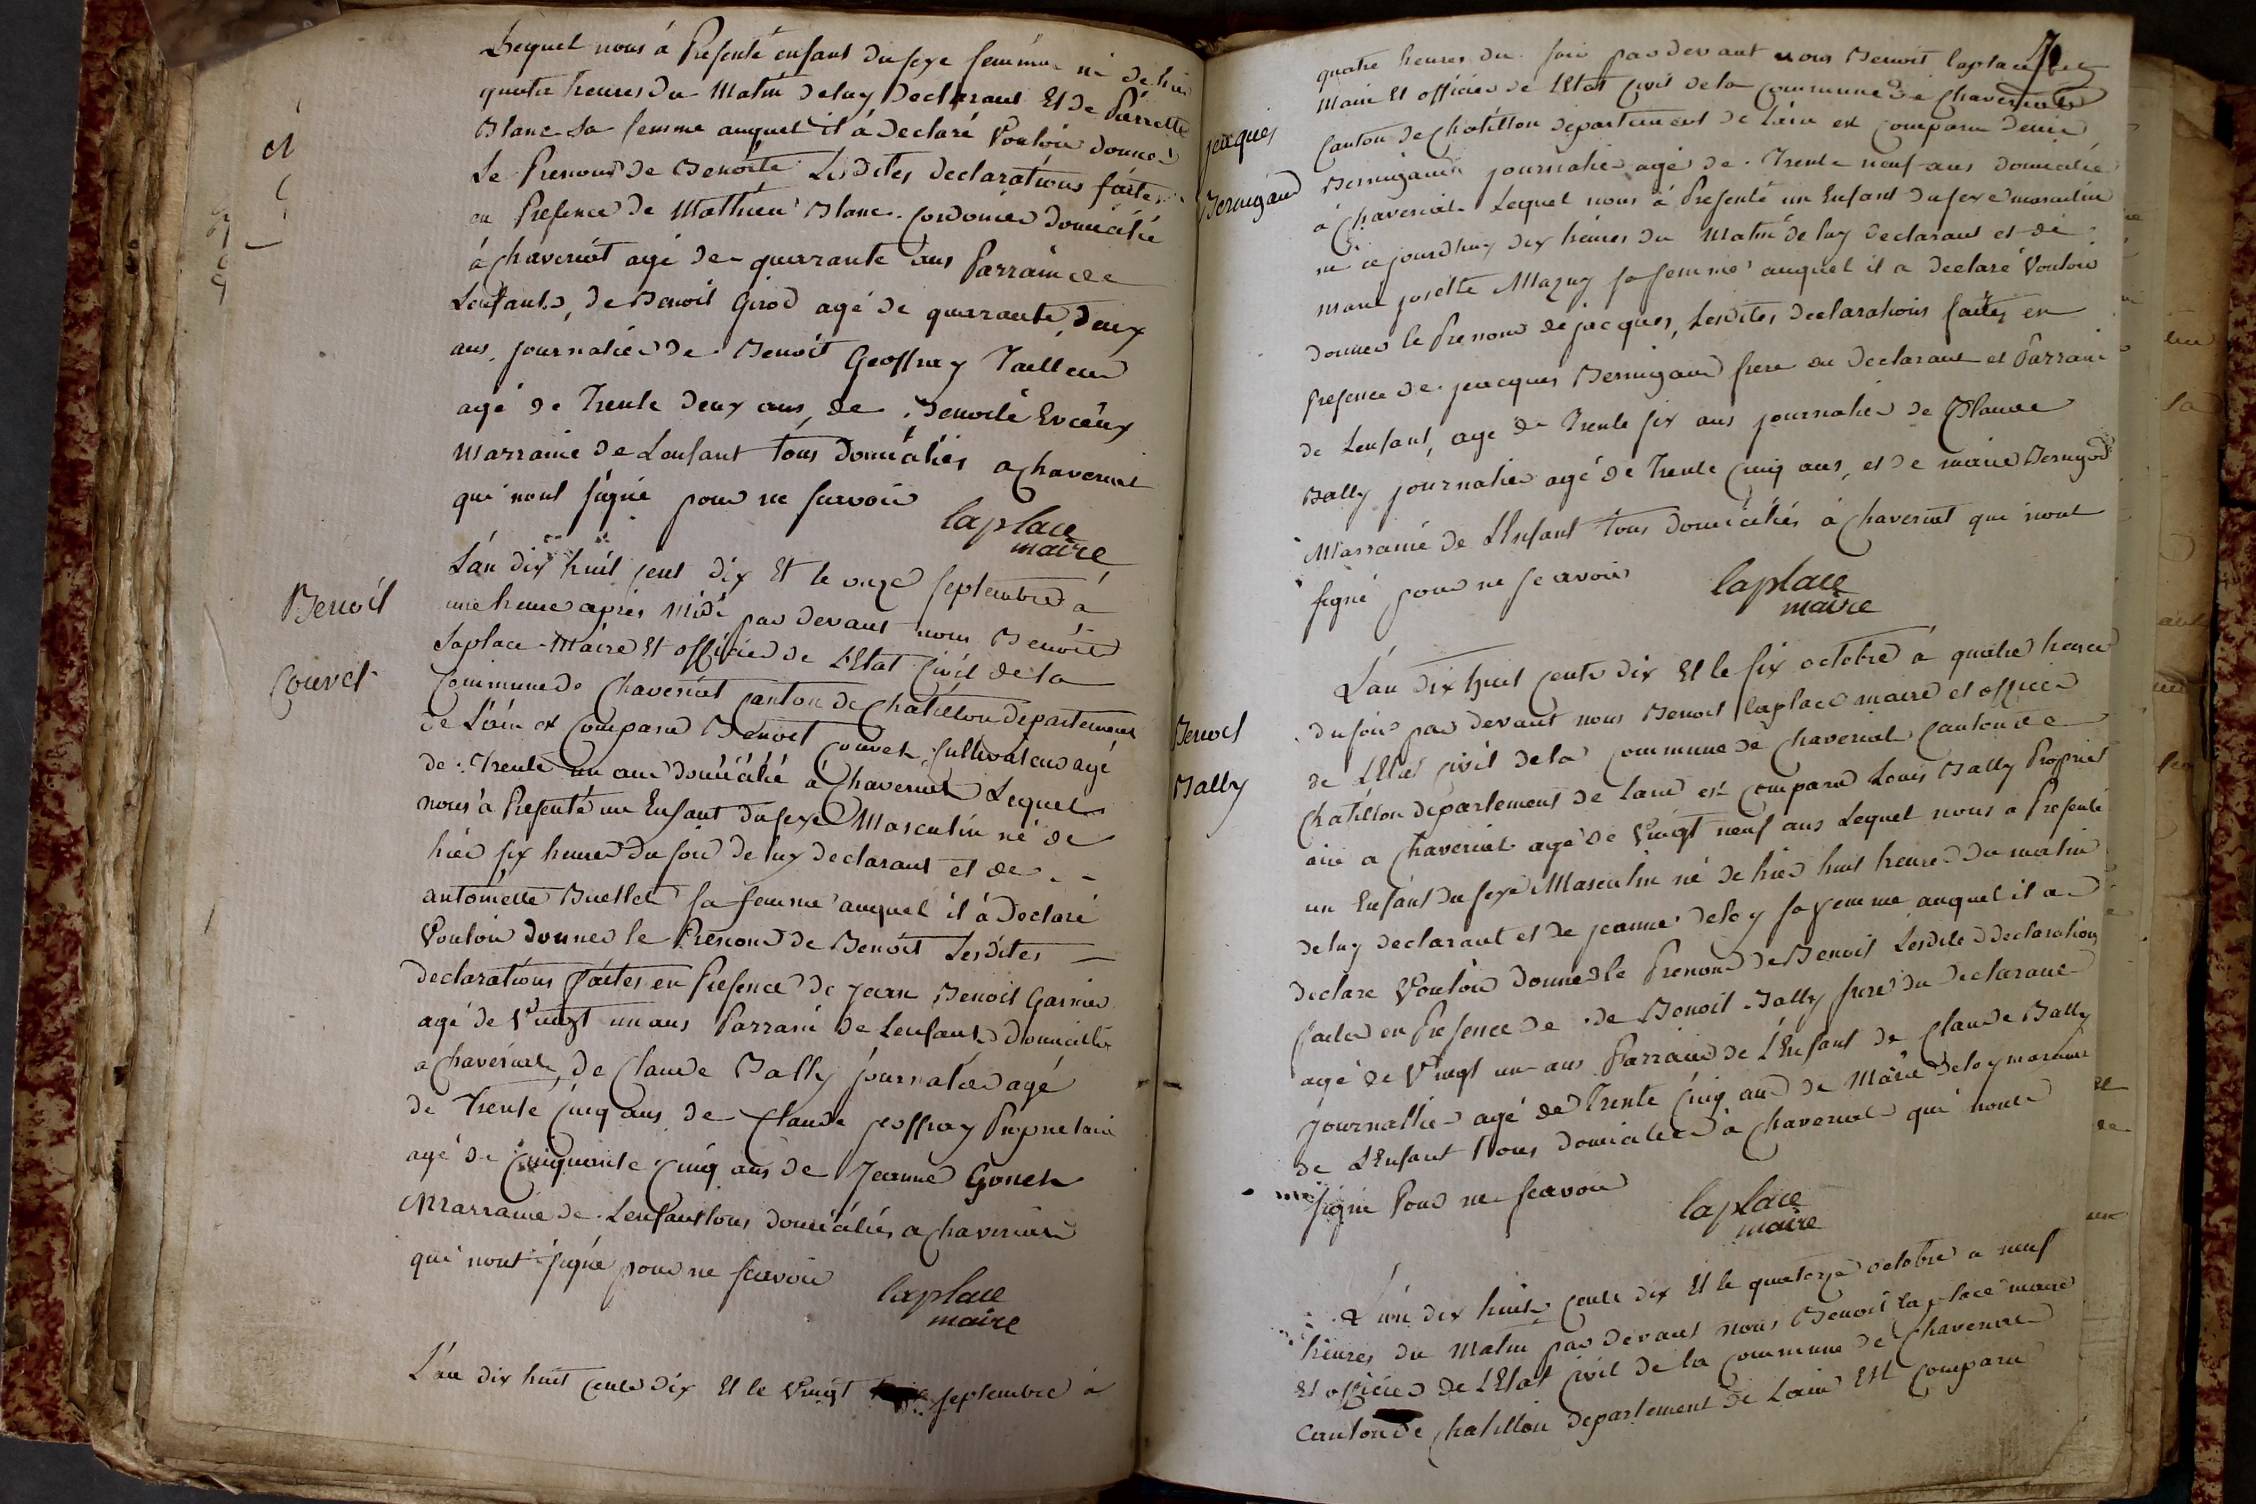 Lequel nous à Presenté enfant du sexe feminin né de hier
quatre heures du Matin de luy declarant Et de Pierrette
Blanc Sa femme auquel il à declaré Vouloir donner
Le Prenom de Benoite Lesdites declarations faites
en Presence de Mathieu Blanc Cordonier domicilié
à Chaveriat agé de quarante ans Parrain de
Lenfant, de Benoit Girod agé de quarante deux
ans, journalier de Benoit Geoffray Tailleur
agé de Trente deux ans, de Benoite
Marraine de Lenfant tous domiciliés a Chaveriat
qui nont signé pour ne scavoir
laplace
maire
Benoit
Couvet
L'an dix huit cent dix Et le onze septembre à
une heure apres Midi par devant nous Benoit
Laplace Maire Et officier de L'Etat Civil de la
Commune de Chaveriat Canton de Chatillon departement
de L'ain est Comparu Benoit Couvet Cultivateur agé
de Trente un ans domicilié à Chaveriat Lequel
nous à Presenté un Enfant du sexe Masculin né de
hier six heures du soir de luy declarant et de
antoinette Buellet sa femme auquel il à declaré
Vouloir donner le Prenom de Benoit Lesdites
declarations faites en Presence de jean Benoit Garnier
agé de Vingt un ans Parrain de Lenfant domicilié
a Chaveriat, de Claude Bally journalier agé
de Trente Cinq ans, de Claude geoffray Proprietaire
agé de Cinquante Cinq ans de Jeanne
Marraine de Lenfant tous domiciliés a Chaveriat
qui nont signé pour ne scavoir
laplace
maire
L'an dix huit cent dix Et le Vingt septembre à
quatre heures du soir par devant nous Benoit laplace
Maire Et officier de L'Etat Civil de la Commune de Chaveriat
jacques
Bernigaud
Canton de Chatillon departement de L'ain est Comparu denis
Bernigaud journalier agé de Trente neuf ans domicilié
à Chaveriat Lequel nous à Presenté un Enfant du sexe masculin
né ce jourdhuy dix heures du Matin de luy declarant et de
marie josette Mazuy sa femme auquel il a declaré Vouloir
donner le Prenom de jacques, Lesdites declarations faites en
Presence de jacques Bernigaud frere du declarant et Parrain
de Lenfant, agé de Trente six ans journalier de Claude
Bally journalier agé de Trente Cinq ans, et de marie Bernigod
Marraine de L'Enfant tous domiciliés à Chaveriat qui nont
signé pour ne scavoir
laplace
maire
Benoit
Bally
L'an dix huit cent dix Et le six octobre à quatre heures
du soir par devant nous Benoit laplace maire et officier
de L'Etat Civil de la Commune de Chaveriat Canton de
Chatillon departement de Lain est Comparu Louis Bally Propriet
aire a Chaveriat agé de Vingt neuf ans Lequel nous a Presenté
un Enfant du sexe Masculin né de hier huit heures du matin
de luy declarant et de jeanne deloy sa femme auquel il a
declare Vouloir donner le Prenom de Benoit Lesdite declarations
faites en Presence de de Benoit Bally frere du declarant
agé de Vingt un ans Parrain de L'Enfant de Claude Bally
journallier agé de Trente Cinq ans de Marie deloy maraine
de L'Enfant Tous domiciliés à Chaveriat qui nont
signé Pour ne scavoir
laplace
maire
L'an dix huit cent dix Et le quatorze octobre a neuf
heures du Matin par devant nous Benoit laplace maire
Et officier de L'Etat Civil de la Commune de Chaveriat
Canton de Chatillon departement de Lain Est Comparu